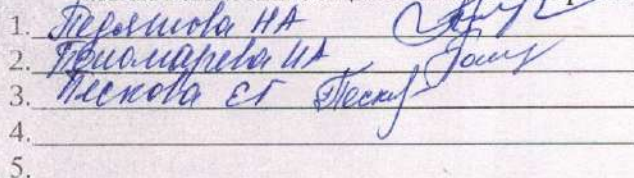 1. Тедяшова НА
2. Пономарева ИА
3. Пескова ЕГ Песк
4.
5.